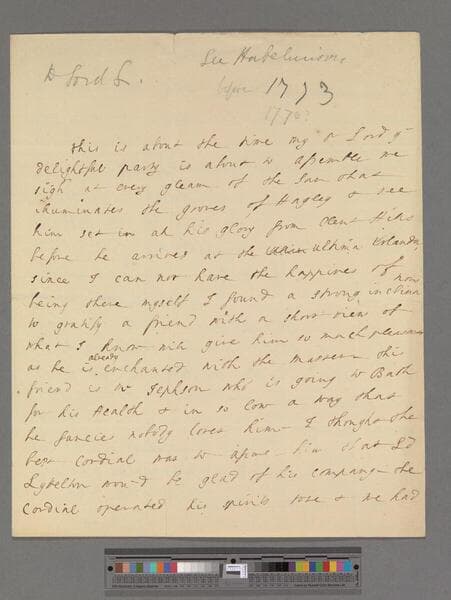 Dr Lord L.
See
before 1773
1770?
this is about the time my Dr Lord yt
delightful party is about to assemble we
sigh at every gleam of the Sun that
illuminates the groves of Hagley & see
him set in all his glory from Clent Hills
before he arrives at the Ultima
since I can not have the happiness of
being there myself I found a strong inclination
to gratify a friend with a short view of
what I know will give him so much pleasure
as he is already enchanted with the Master this
friend is Mr Jephson who is going to Bath
for his Health & in so low a way that
he fancies nobody loves him I thought the
best cordial was to assure him that Ld
Lyttelton wou'd be glad of his company the
Cordial operated his spirits rose & we had